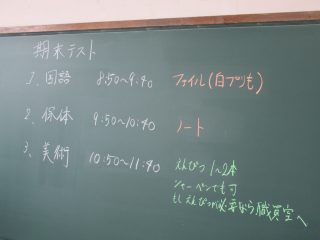 期末テスト
1、国語 8:50〜9:40 ファイル(白プリも)
2、保体 9:50〜10:40 ノート
3、美術 10:50〜11:40 えんぴつ 1〜2本
シャーペンでも可
もしえんぴつが必要なら職員室へ